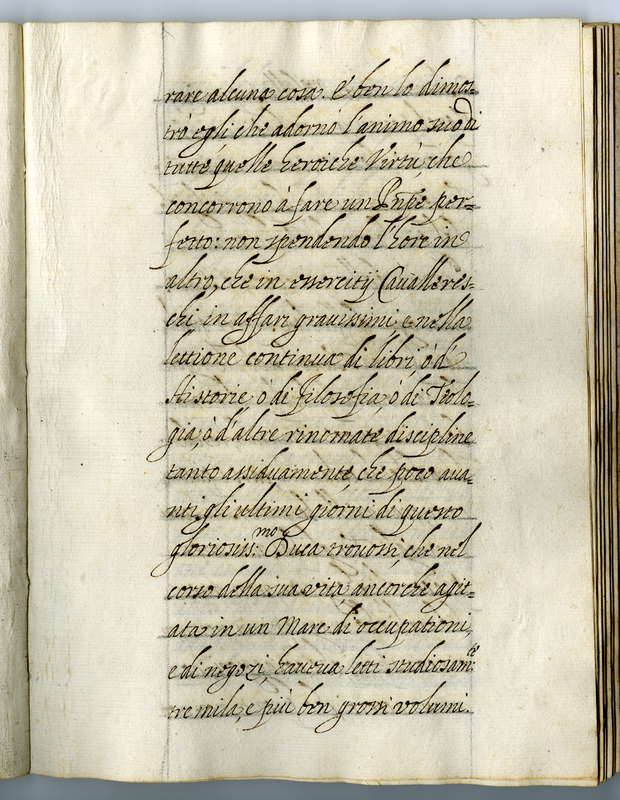 rare alcuna cosa. E ben lo dimos=
trò egli che adornò l'animo suo di
tutte quelle heroiche Virtù, che
concorrono à fare un Pñpe per=
fetto: non spendendo l'hore in
altro, che in essercitij Cavalleres=
chi in affari gravissimi, e nella
lettione continua di libri, ò d'
Historie, ò di Filosofia, ò di Teolo=
gia, ò d'altre rinomate discipline
tanto assiduamente, che poco ava=
nti gli ultimi giorni di questo
gloriosiss:mo Duca trovossi, che nel
corso della sua vita, ancorche agit=
ata in un Mare di occupationi,
e di negozi, haveva letti studiosam:te
tre mila, e più ben grossi volumi.